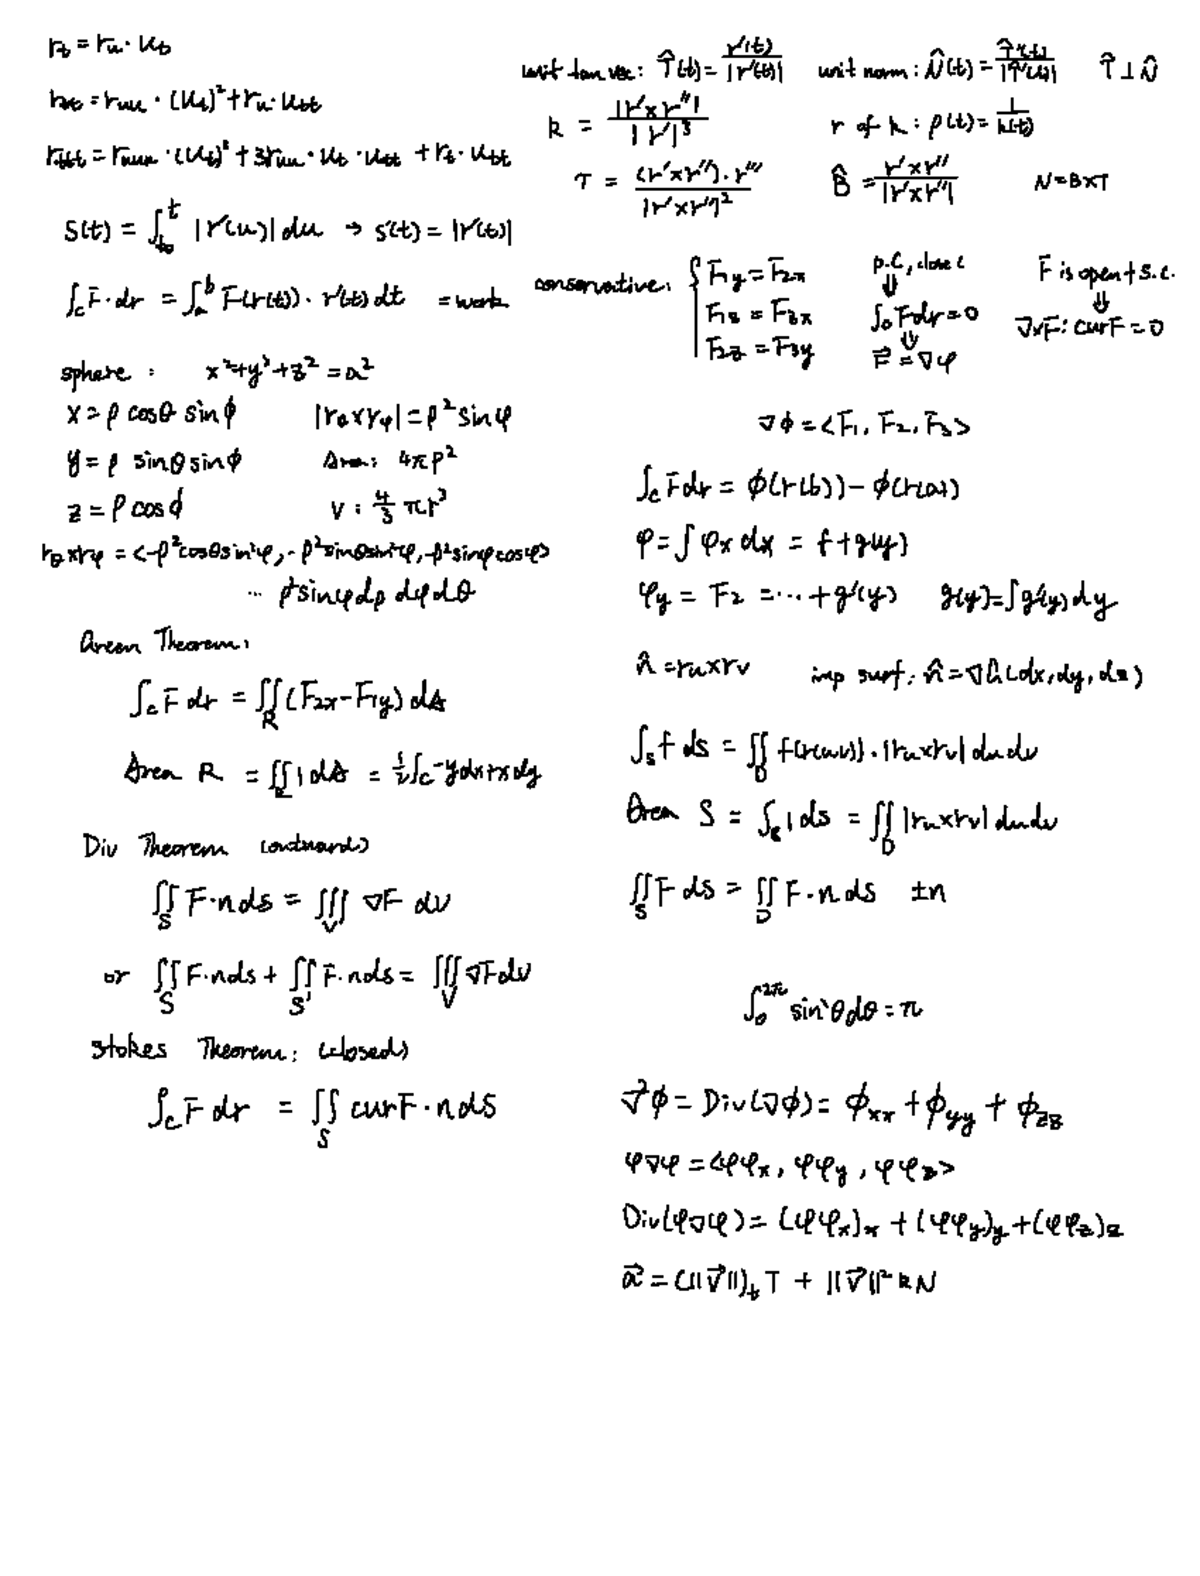 r_t = r_u · u_t
r_tt = r_uu · (u_t)² + r_u · u_tt
r_ttt = r_uuu · (u_t)³ + 3r_uu · u_t · u_tt + r_t · u_tt
S(t) = ∫_{t₀}^{t} |r'(u)| du → s'(t) = |r'(t)|
∫_C F̄ · dr = ∫_a^b F(r(t)) · r'(t) dt = work
sphere : x² + y² + z² = a²
x = ρ cosθ sinϕ |r_θ x r_φ| = ρ² sin φ
y = ρ sinθ sinϕ Area: 4πρ²
z = ρ cosϕ V : 4/3 πr³
r_θ x r_φ = <-ρ²cosθsin²φ, -ρ²sinθsin²φ, -ρ²sinφcosφ>
... ρ²sinφ dρ dφ dθ
Green Theorem:
∫_C F̄ dr = ∬_R (F₂x - F₁y) dA
Area R = ∬_R 1 dA = ½ ∫_C -y dx + x dy
Div Theorem (outward)
∬_S F · n ds = ∭_V ∇F dV
or ∬_S F · n ds + ∬_S' F · n ds = ∭_V ∇F dV
Stokes Theorem: (closed)
∫_C F̄ dr = ∬_S curF · n dS
unit tan vec: T̂(t) = r'(t) / |r'(t)| unit norm: N̂(t) = T̂'(t) / |T̂'(t)| T̂ ⊥ N̂
k = |r' x r''| / |r'|³ r of k : ρ(t) = 1 / k(t)
τ = (r' x r'') · r''' / |r' x r''|² B̂ = r' x r'' / |r' x r''| N = B x T
conservative: { F₁y = F₂x p.C, close C F is open + s.c.
F₁z = F₃x ⇓ ∫_C F dr = 0 ⇓ ∇xF: curF = 0
F₂z = F₃y ⇓ F⃗ = ∇φ
∇ϕ = <F₁, F₂, F₃>
∫_C F̄ dr = ϕ(r(b)) - ϕ(r(a))
φ = ∫ φx dx = f + g(y)
φy = F₂ = ... + g'(y) g(y) = ∫ g'(y) dy
n̂ = r_u x r_v imp surf: n̂ = ∇h (dx, dy, dz)
∫_S f ds = ∬_D f(r(u,v)) · |r_u x r_v| du dv
Area S = ∫_S 1 ds = ∬_D |r_u x r_v| du dv
∬_S F ds = ∬_D F · n ds ±n
∫_0^{2π} sin²θ dθ = π
∇²ϕ = Div(∇ϕ) = ϕxx + ϕyy + ϕzz
φ∇φ = <φφx, φφy, φφz>
Div(φ∇φ) = (φφx)x + (φφy)y + (φφz)z
a⃗ = (||v⃗||)_t T + ||v⃗||² k N